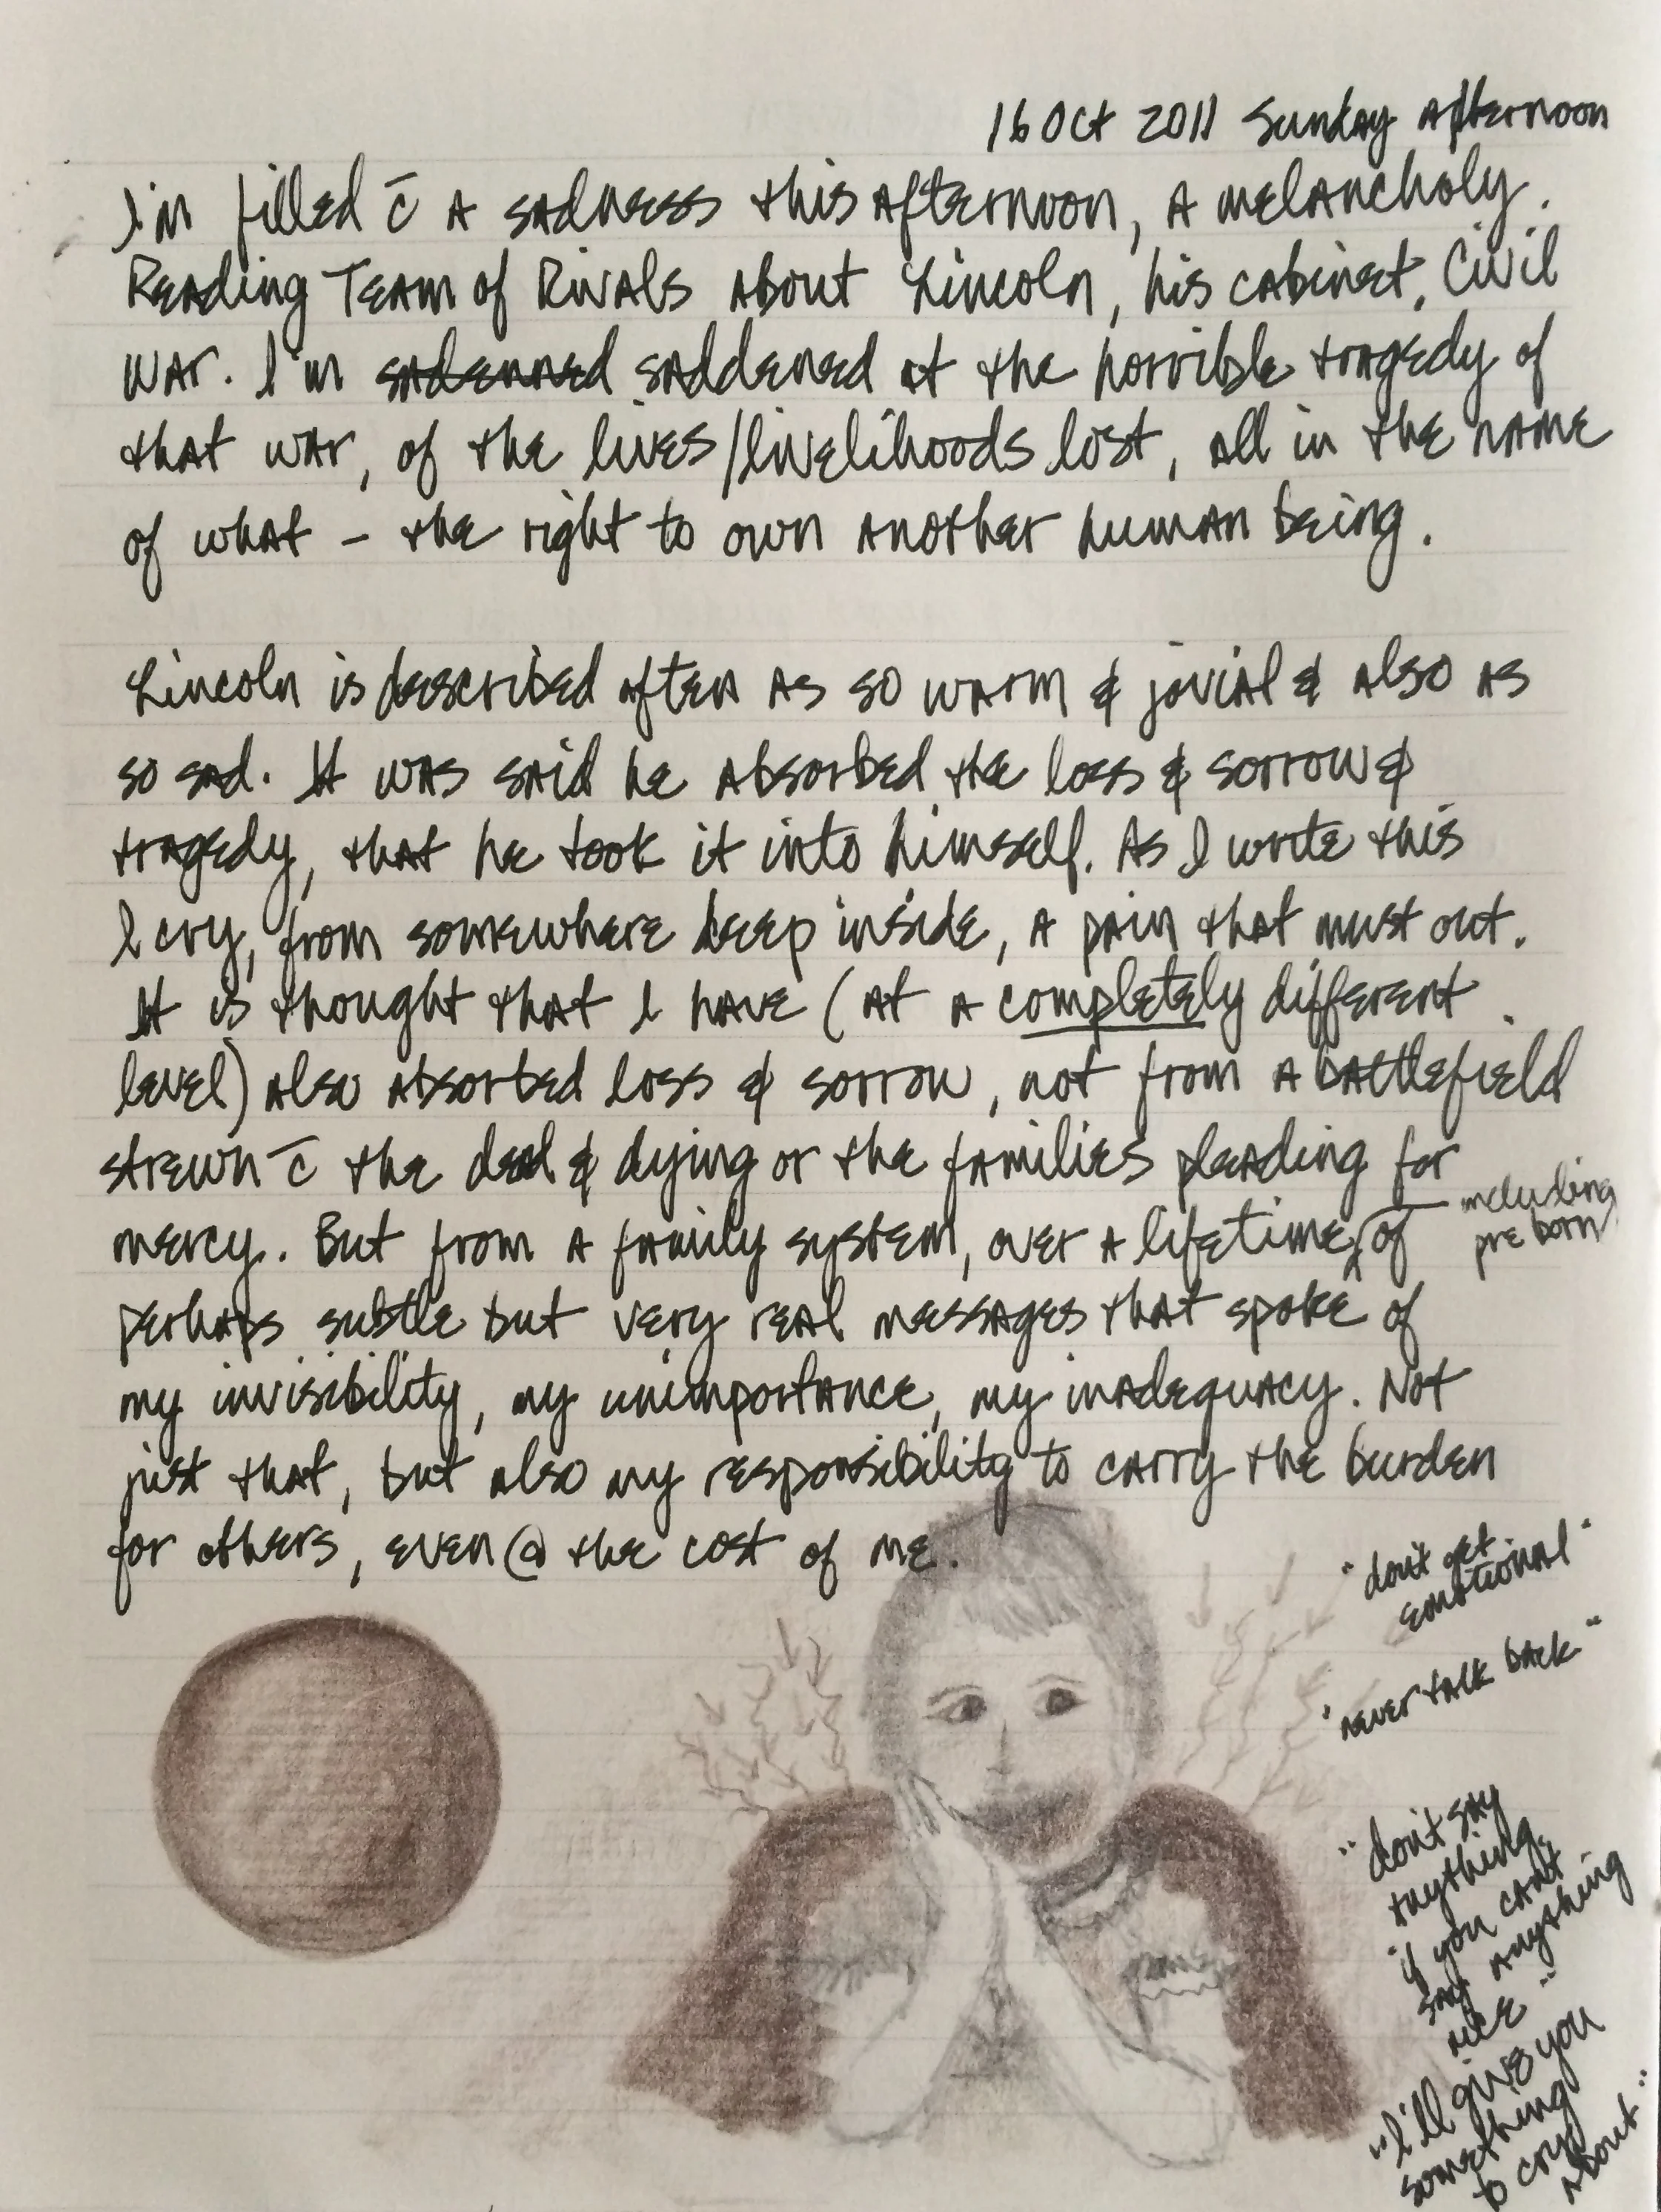 16 Oct 2011 Sunday afternoon
I'm filled c̄ a sadness this afternoon, a melancholy.
Reading Team of Rivals about Lincoln, his cabinet, Civil
War. I'm sadenned saddened at the horrible tragedy of
that war, of the lives/livelihoods lost, all in the name
of what - the right to own another human being.
Lincoln is described often as so warm & jovial & also as
so sad. It was said he absorbed the loss & sorrow &
tragedy, that he took it into himself. As I write this
I cry, from somewhere deep inside, a pain that must out.
It is thought that I have (at a completely different
level) also absorbed loss & sorrow, not from a battlefield
strewn c̄ the dead & dying or the families pleading for
mercy. But from a family system, over a lifetime, of
including
pre born
perhaps subtle but very real messages that spoke of
my invisibility, my unimportance, my inadequacy. Not
just that, but also my responsibility to carry the burden
for others, even @ the cost of me.
"don't get
emotional"
"never talk back"
"don't say
anything,
if you can't
say anything
nice"
"I'll give you
something
to cry
about"